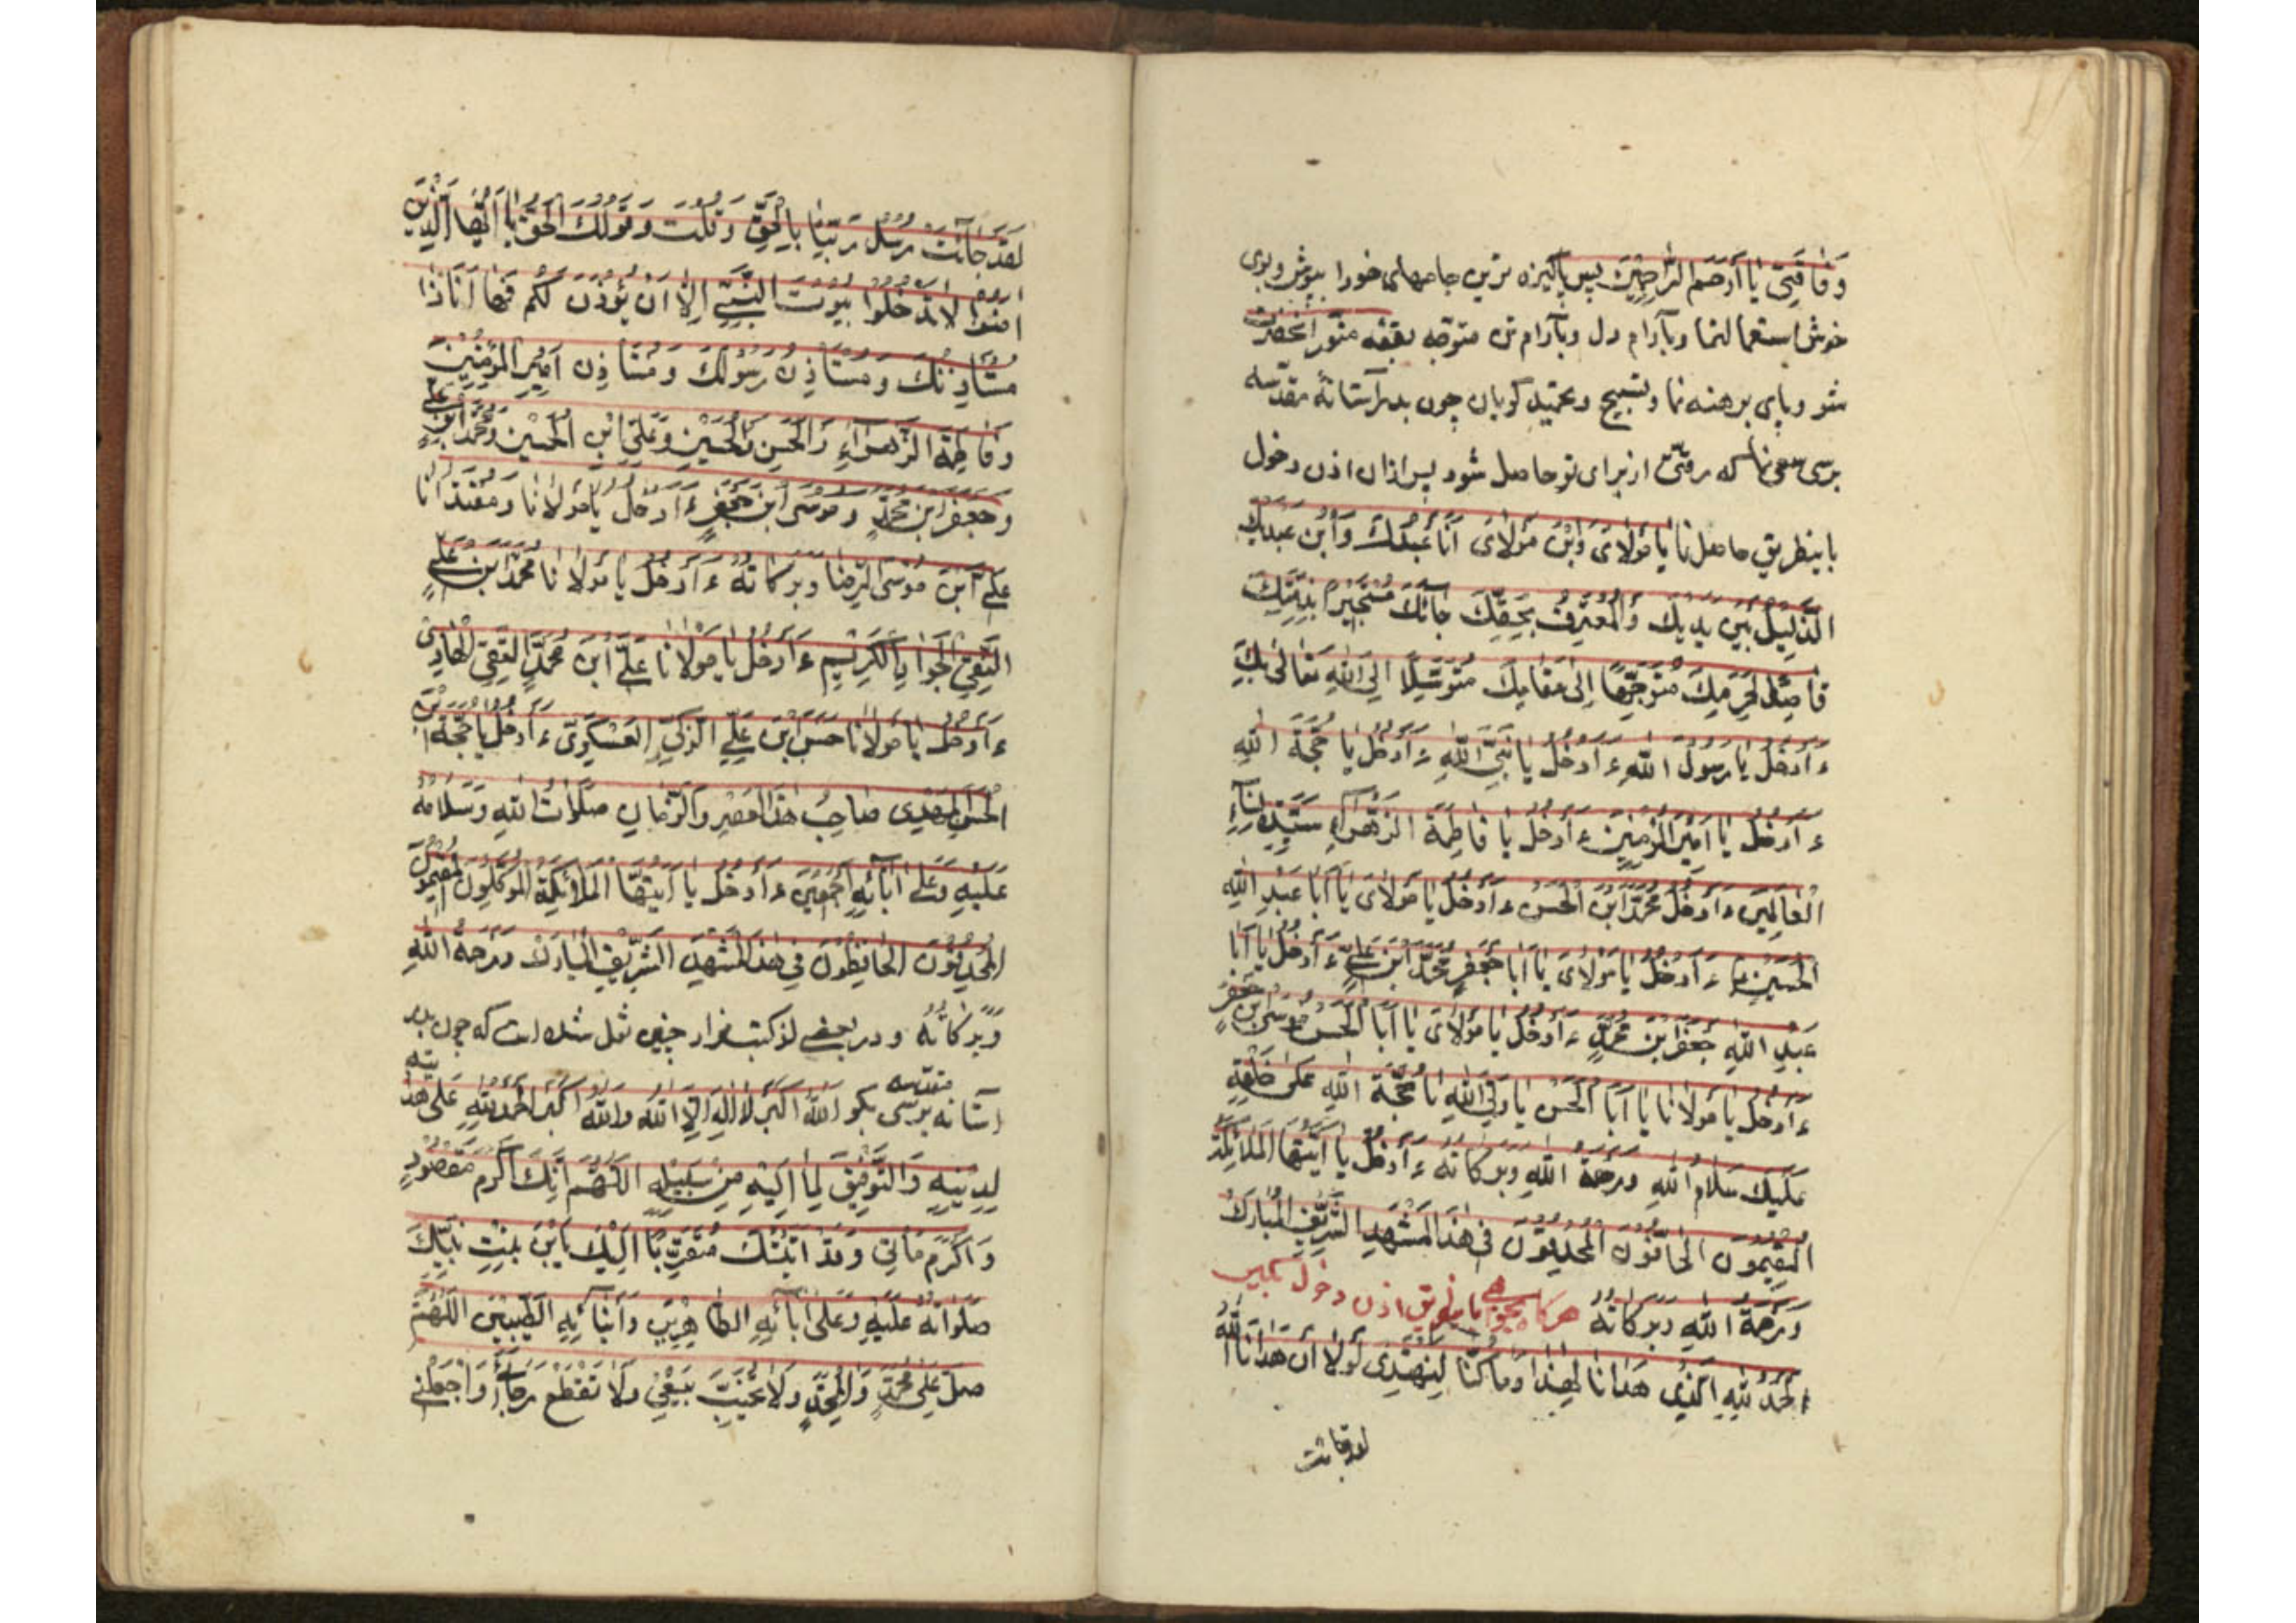 وَفَاقَتِى يَا أَرْحَمَ الرَّاحِمِينَ پس پاكيزه ترين جامهاى خودرا بپوش وبوى
خوش استعمال نما وبآرام دل وبآرام تن متوجه بقعه منور انحضرت
شو وپاى برهنه نما وتسبيح وتحميد كويان چون بدر آستانهٔ مقدسه
برسى سعى نما كه رقتى از براى تو حاصل شود پس ازان اذن دخول
باينطريق حاصل نما يَا مَوْلَاىَ وَابْنَ مَوْلَاىَ أَنَا عَبْدُكَ وَابْنُ عَبْدِكَ
الذَّلِيلُ بَيْنَ يَدَيْكَ وَالْمُعْتَرِفُ بِحَقِّكَ جَائَكَ مُسْتَجِيرًا بِذِمَّتِكَ
قَاصِدًا لِحَرَمِكَ مُتَوَجِّهًا إِلَى مَقَامِكَ مُتَوَسِّلًا إِلَى اللهِ تَعَالَى بِكَ
ءَأَدْخُلُ يَا رَسُولَ اللهِ ءَأَدْخُلُ يَا نَبِيَّ اللهِ ءَأَدْخُلُ يَا حُجَّةَ اللهِ
ءَأَدْخُلُ يَا أَمِيرَ الْمُؤْمِنِينَ ءَأَدْخُلُ يَا فَاطِمَةَ الزَّهْرَاءِ سَيِّدَةِ نِسَاءِ
الْعَالَمِينَ ءَأَدْخُلُ مُحَمَّدَ ابْنَ الْحَسَنِ ءَأَدْخُلُ يَا مَوْلَاىَ يَا أَبَا عَبْدِ اللهِ
الْحُسَيْنِ ءَأَدْخُلُ يَا مَوْلَاىَ يَا أَبَا جَعْفَرٍ مُحَمَّدَ ابْنَ عَلِيٍّ ءَأَدْخُلُ يَا أَبَا
عَبْدِ اللهِ جَعْفَرَ ابْنَ مُحَمَّدٍ ءَأَدْخُلُ يَا مَوْلَاىَ يَا أَبَا الْحَسَنِ مُوسَى ابْنَ جَعْفَرٍ
ءَأَدْخُلُ يَا مَوْلَانَا يَا أَبَا الْحَسَنِ يَا وَلِيَّ اللهِ يَا حُجَّةَ اللهِ عَلَى خَلْقِهِ
عَلَيْكَ سَلَامُ اللهِ وَرَحْمَةُ اللهِ وَبَرَكَاتُهُ ءَأَدْخُلُ يَا أَيَّتُهَا الْمَلَائِكَةُ
الْمُقِيمُونَ الْحَافُّونَ الْمُحْدِقُونَ فِى هَذَا الْمَشْهَدِ الشَّرِيفِ الْمُبَارَكِ
وَرَحْمَةُ اللهِ وَبَرَكَاتُهُ هركاه بخواهى باينطريق اذن دخول بكير
الْحَمْدُ لِلهِ الَّذِى هَدَانَا لِهَذَا وَمَا كُنَّا لِنَهْتَدِىَ لَوْلَا أَنْ هَدَانَا اللهُ
لقد جائت
لَقَدْ جَائَتْ رُسُلُ رَبِّنَا بِالْحَقِّ وَقُلْتَ وَقَوْلُكَ الْحَقُّ يَا أَيُّهَا الَّذِينَ
امَنُوا لَا تَدْخُلُوا بُيُوتَ النَّبِيِّ إِلَّا أَنْ يُؤْذَنَ لَكُمْ فَهَا أَنَا ذَا
مُسْتَأْذِنُكَ وَمُسْتَأْذِنُ رَسُولِكَ وَمُسْتَأْذِنُ أَمِيرِ الْمُؤْمِنِينَ
وَفَاطِمَةَ الزَّهْرَاءِ وَالْحَسَنِ وَالْحُسَيْنِ وَعَلِيِّ ابْنِ الْحُسَيْنِ وَمُحَمَّدِ ابْنِ عَلِيٍّ
وَجَعْفَرِ ابْنِ مُحَمَّدٍ وَمُوسَى ابْنِ جَعْفَرٍ ءَأَدْخُلُ يَا مَوْلَانَا وَمُقْتَدَانَا
عَلِيَّ ابْنَ مُوسَى الرِّضَا وَبَرَكَاتُهُ ءَأَدْخُلُ يَا مَوْلَانَا مُحَمَّدَ ابْنَ عَلِيٍّ
التَّقِيَّ الْجَوَادِ الْكَرِيمِ ءَأَدْخُلُ يَا مَوْلَانَا عَلِيَّ ابْنَ مُحَمَّدٍ النَّقِيَّ الْهَادِى
ءَأَدْخُلُ يَا مَوْلَانَا حَسَنَ ابْنَ عَلِيٍّ الزَّكِيِّ الْعَسْكَرِىِّ ءَأَدْخُلُ يَا حُجَّةَ ابْنَ
الْحَسَنِ الْمَهْدِى صَاحِبَ هَذَا الْعَصْرِ وَالزَّمَانِ صَلَوَاتُ اللهِ وَسَلَامُهُ
عَلَيْهِ وَعَلَى آبَائِهِ أَجْمَعِينَ ءَأَدْخُلُ يَا أَيَّتُهَا الْمَلَائِكَةُ الْمُوَكَّلُونَ الْمُقِيمُونَ
الْمُحْدِقُونَ الْحَافِظُونَ فِى هَذَا الْمَشْهَدِ الشَّرِيفِ الْمُبَارَكِ وَرَحْمَةُ اللهِ
وَبَرَكَاتُهُ ودر بعضى از كتب مزار چنين نقل شده است كه چون بدر
آستانه مقدسه برسى بكو اللهُ أَكْبَرُ لَا إِلَهَ إِلَّا اللهُ وَاللهُ أَكْبَرُ الْحَمْدُ لِلهِ عَلَى هِدَايَتِهِ
لِدِينِهِ وَالتَّوْفِيقِ لِمَا إِلَيْهِ مِنْ سَبِيلِهِ اللَّهُمَّ إِنَّكَ أَكْرَمُ مَقْصُودٍ
وَأَكْرَمُ مَأْتِىٍّ وَقَدْ أَتَيْتُكَ مُتَقَرِّبًا إِلَيْكَ بِابْنِ بِنْتِ نَبِيِّكَ
صَلَوَاتُهُ عَلَيْهِ وَعَلَى آبَائِهِ الطَّاهِرِينَ وَأَبْنَائِهِ الطَّيِّبِينَ اللَّهُمَّ
صَلِّ عَلَى مُحَمَّدٍ وَآلِ مُحَمَّدٍ وَلَا تُخَيِّبْ سَعْيِى وَلَا تَقْطَعْ رَجَائِى وَاجْعَلْنِى